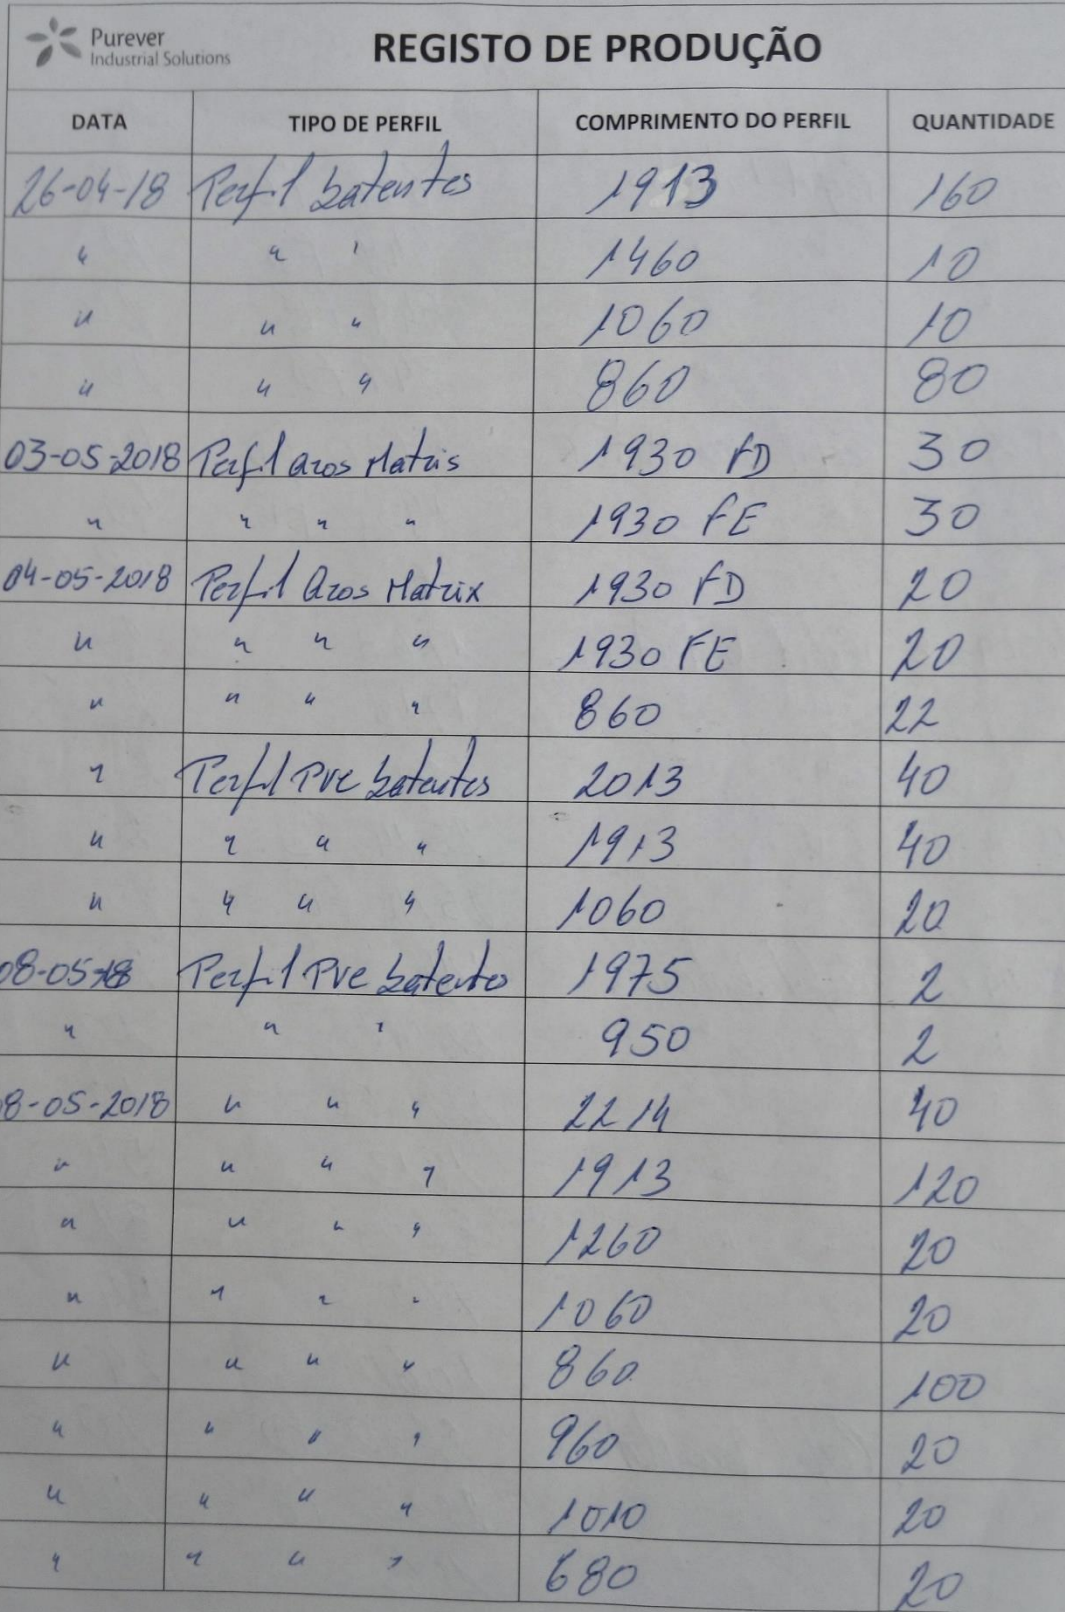 Purever
Industrial Solutions
REGISTO DE PRODUÇÃO
DATA TIPO DE PERFIL COMPRIMENTO DO PERFIL QUANTIDADE
26-04-18 Perfil batentes 1913 160
" " " 1460 10
" " " 1060 10
" " " 860 80
03-05-2018 Perfil aros Matris 1930 FD 30
" " " " 1930 FE 30
04-05-2018 Perfil Aros Matrix 1930 FD 20
" " " " 1930 FE 20
" " " " 860 22
" Perfil Pvc batentes 2013 40
" " " " 1913 40
" " " " 1060 20
08-05-18 Perfil Pvc batente 1975 2
" " " 950 2
8-05-2018 " " " 2214 40
" " " " 1913 120
" " " " 1260 20
" " " " 1060 20
" " " " 860 100
" " " " 960 20
" " " " 1010 20
" " " " 680 20